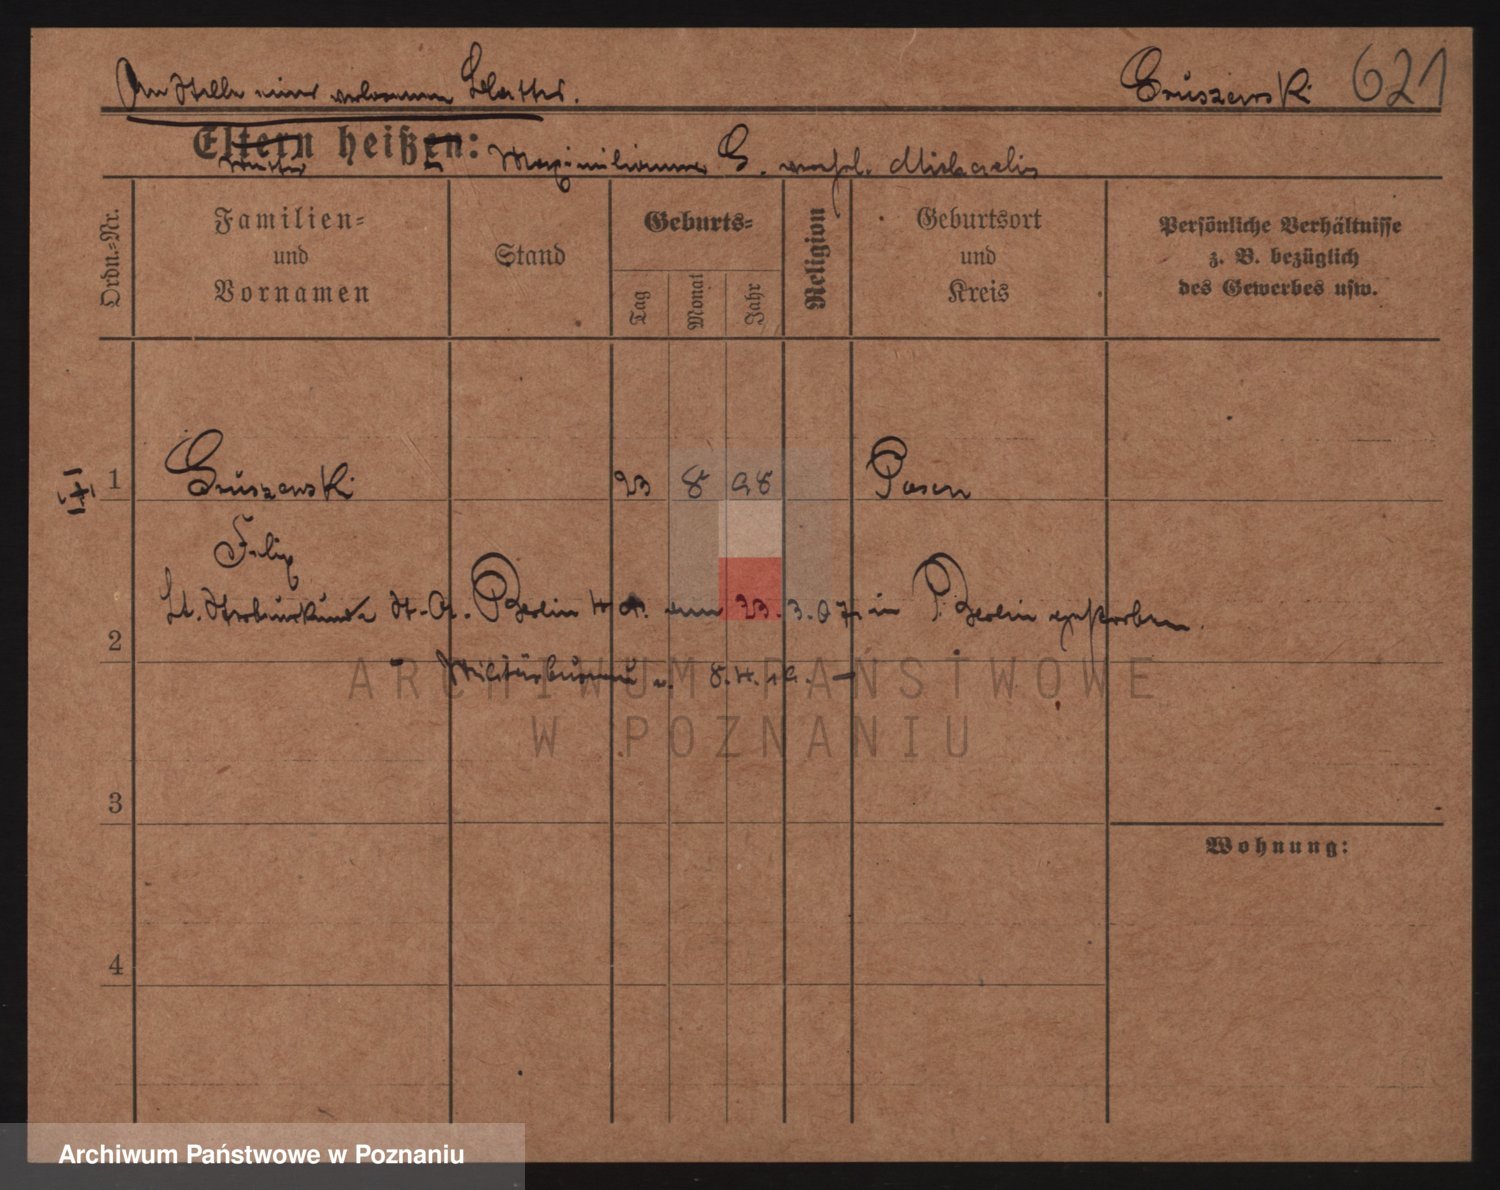 An Stelle eines verlorenen Blattes.
Gruszewski 621
Eltern heißen:
Mutter Maximiliane G. verehl. Michaelis
Ordn.=Nr.
Familien=
und
Vornamen
Stand
Geburts=
Tag
Monat
Jahr
Religion
Geburtsort
und
Kreis
Persönliche Verhältnisse
z. B. bezüglich
des Gewerbes usw.
1 Gruszewski 23 8 98 Posen
Felix
Lt. Sterburkunde St.-A. Berlin am 23.3.07 in Berlin gestorben.
2
Militärbureau v. 8.4.19. –
ARCHIWUM PAŃSTWOWE
W POZNANIU
3
Wohnung:
4
Archiwum Państwowe w Poznaniu